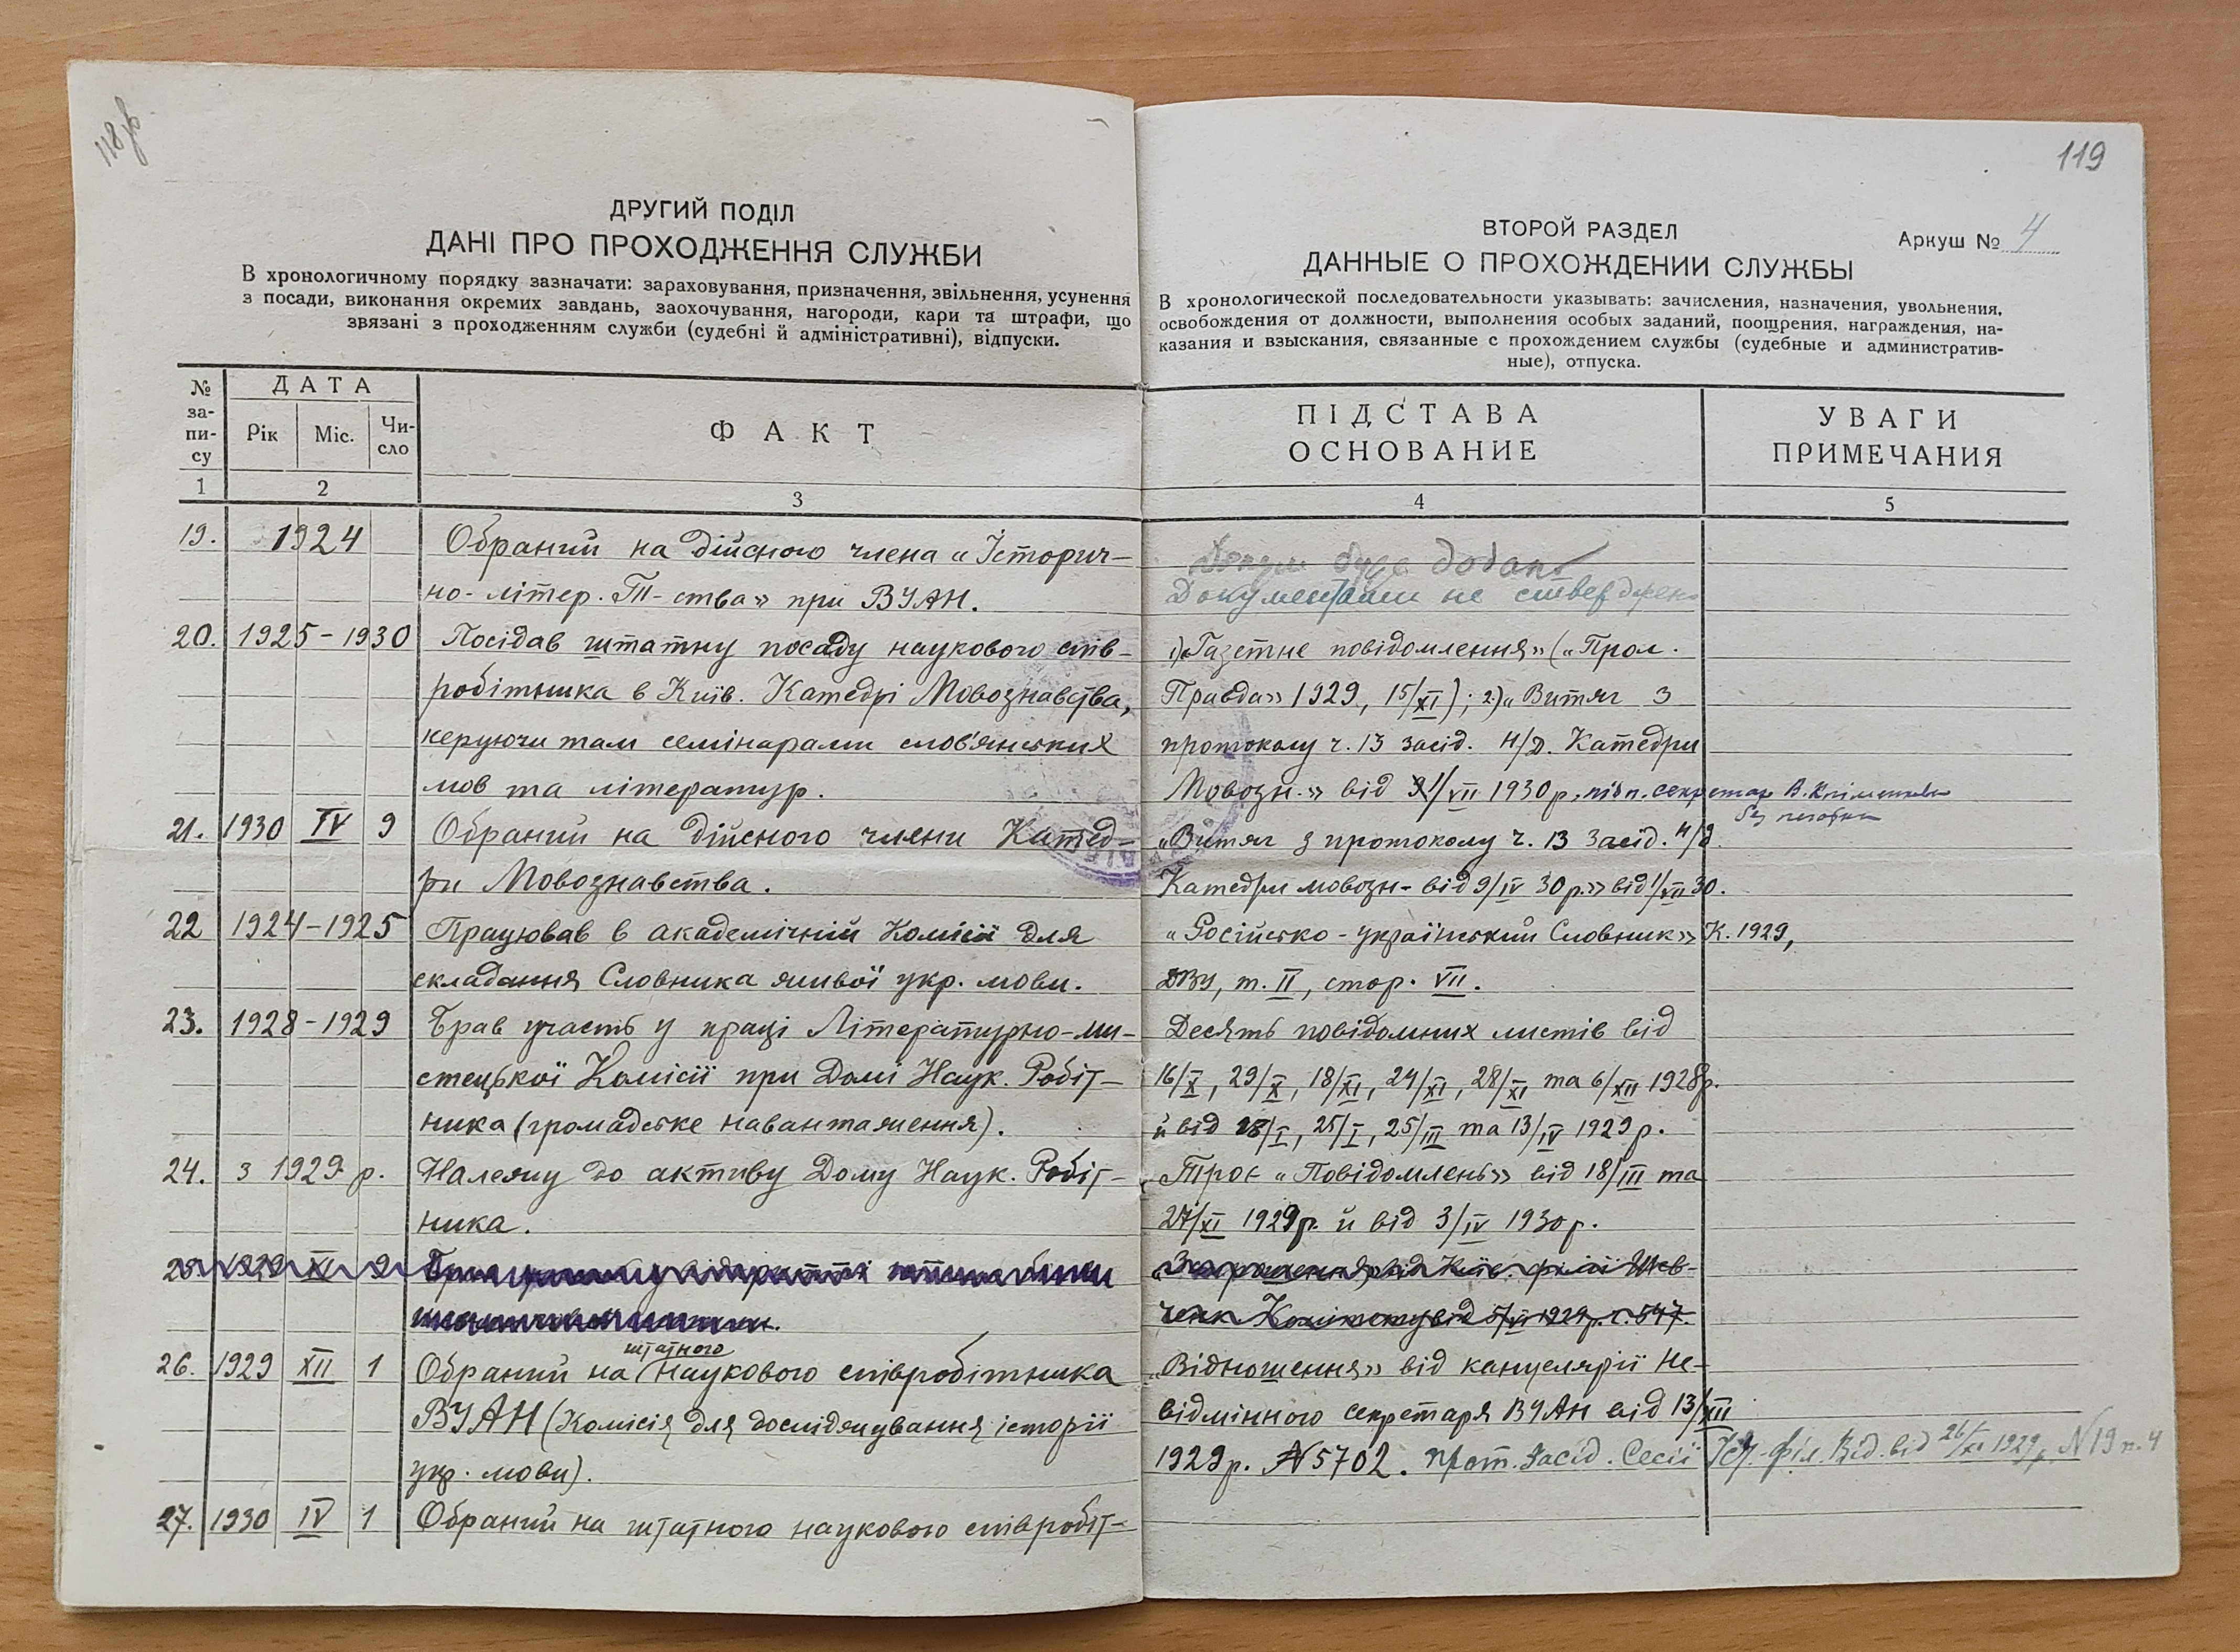 118 зв.
ДРУГИЙ ПОДІЛ
ДАНІ ПРО ПРОХОДЖЕННЯ СЛУЖБИ
В хронологичному порядку зазначати: зараховування, призначення, звільнення, усунення
з посади, виконання окремих завдань, заохочування, нагороди, кари та штрафи, що
звязані з проходженням служби (судебні й адміністративні), відпуски.
№ за-пи-су
ДАТА
Рік Міс. Чи-сло
ФАКТ
1 2 3
19. 1924 Обраний на дійсного члена „Історич-
но-літер. Т-ства» при ВУАН.
20. 1925-1930 Посідав штатну посаду наукового спів-
робітника в Київ. Катедрі Мовознавства,
керуючи там семінарами слов'янських
мов та літератур.
21. 1930 IV 9 Обраний на дійсного члени Катед-
ри Мовознавства.
22 1924-1925 Працював в академічній Комісії для
складання Словника живої укр. мови.
23. 1928-1929 Брав участь у праці Літературно-ми-
стецької Комісії при Домі Наук. Робіт-
ника (громадське навантаження).
24. з 1929 р. Належу до активу Дому Наук. Робіт-
ника.
25. 1929 XI 9
26. 1929 XII 1 Обраний на штатного наукового співробітника
ВУАН (Комісія для досліджування історії
укр. мови).
27. 1930 IV 1 Обраний на штатного наукового співробіт-
119
ВТОРОЙ РАЗДЕЛ
Аркуш № 4
ДАННЫЕ О ПРОХОЖДЕНИИ СЛУЖБЫ
В хронологической последовательности указывать: зачисления, назначения, увольнения,
освобождения от должности, выполнения особых заданий, поощрения, награждения, на-
казания и взыскания, связанные с прохождением службы (судебные и административ-
ные), отпуска.
ПІДСТАВА
ОСНОВАНИЕ
УВАГИ
ПРИМЕЧАНИЯ
4 5
буде додано
Документами не стверджен
1) „Газетне повідомлення» („Прол.
Правда» 1929, 15/XI); 2) „Витяг з
протоколу ч. 13 засід. Н/Д. Катедри
Мовозн.» від 1/VII 1930 р, підп. секретар В.
без печатки
„Витяг з протоколу ч. 13 засід. Н/Д.
Катедри мовозн- від 9/IV 30 р.» від 1/VII 30.
„Російсько-український Словник» К. 1929,
ДВУ, т. II, стор. VII.
Десять повідомних листів від
16/X, 29/X, 18/XI, 24/XI, 28/XI та 6/XII 1928 р.
й від 18/I, 25/I, 25/III та 13/IV 1929 р.
Троє „Повідомлень» від 18/III та
27/XI 1929 р. й від 3/IV 1930 р.
„Запрошення» від Київ. філії Шев-
ченк Комітету від 5/VI 1929 р. ч. 547.
„Відношення» від канцелярії Не-
відмінного секретаря ВУАН від 13/XII
1929 р. № 5702. Прот. Засід. Сесії Іст.-філ. Від. від 26/XI 1929 р. N 19 п. 4